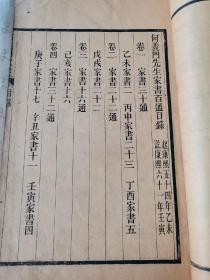 何義門先生家書百通目錄 起康熙五十四年乙未
訖康熙六十一年壬寅
卷一 家書三十三通
乙未家書十 丙申家書二十三 丁酉家書五
卷二 家書二十二通
戊戌家書二十二
卷三 家書十六通
己亥家書十六
卷四 家書三十二通
庚子家書十七 辛丑家書十一 壬寅家書四